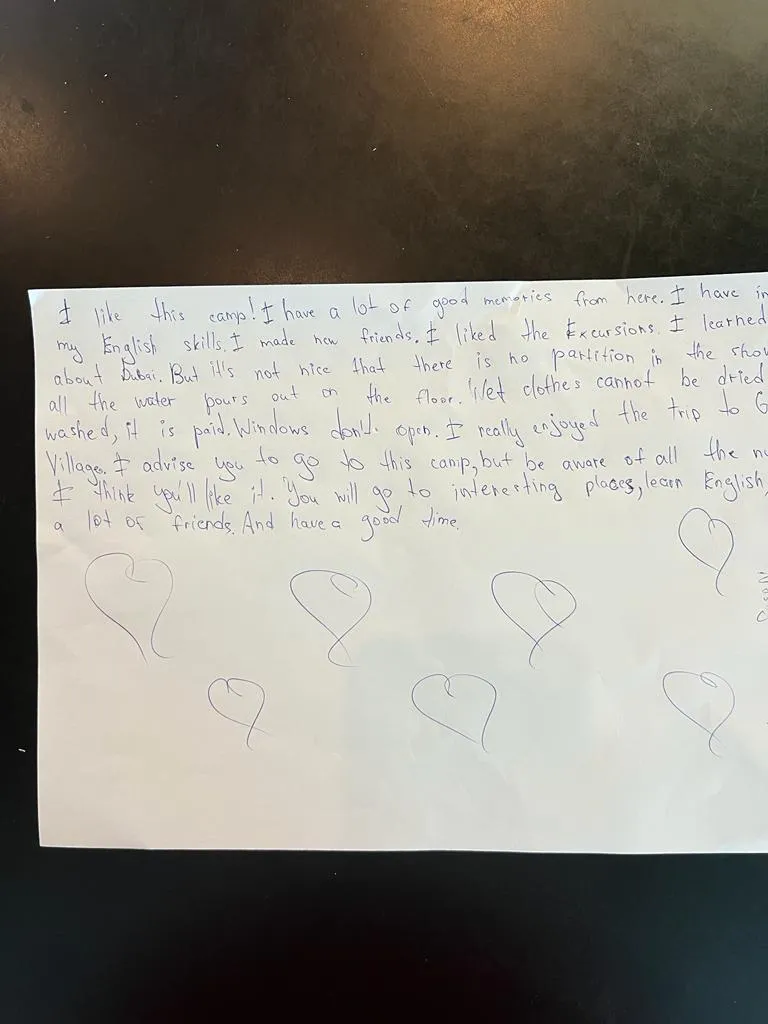 I like this camp! I have a lot of good memories from here. I have
my English skills. I made new friends. I liked the Excursions. I learned
about Dubai. But it's not nice that there is no partition in the
all the water pours out on the floor. Wet clothes cannot be dried
washed, it is paid. Windows don't open. I really enjoyed the trip to G
Village. I advise you to go to this camp, but be aware of all the
I think you'll like it. You will go to interesting places, learn English,
a lot of friends. And have a good time.